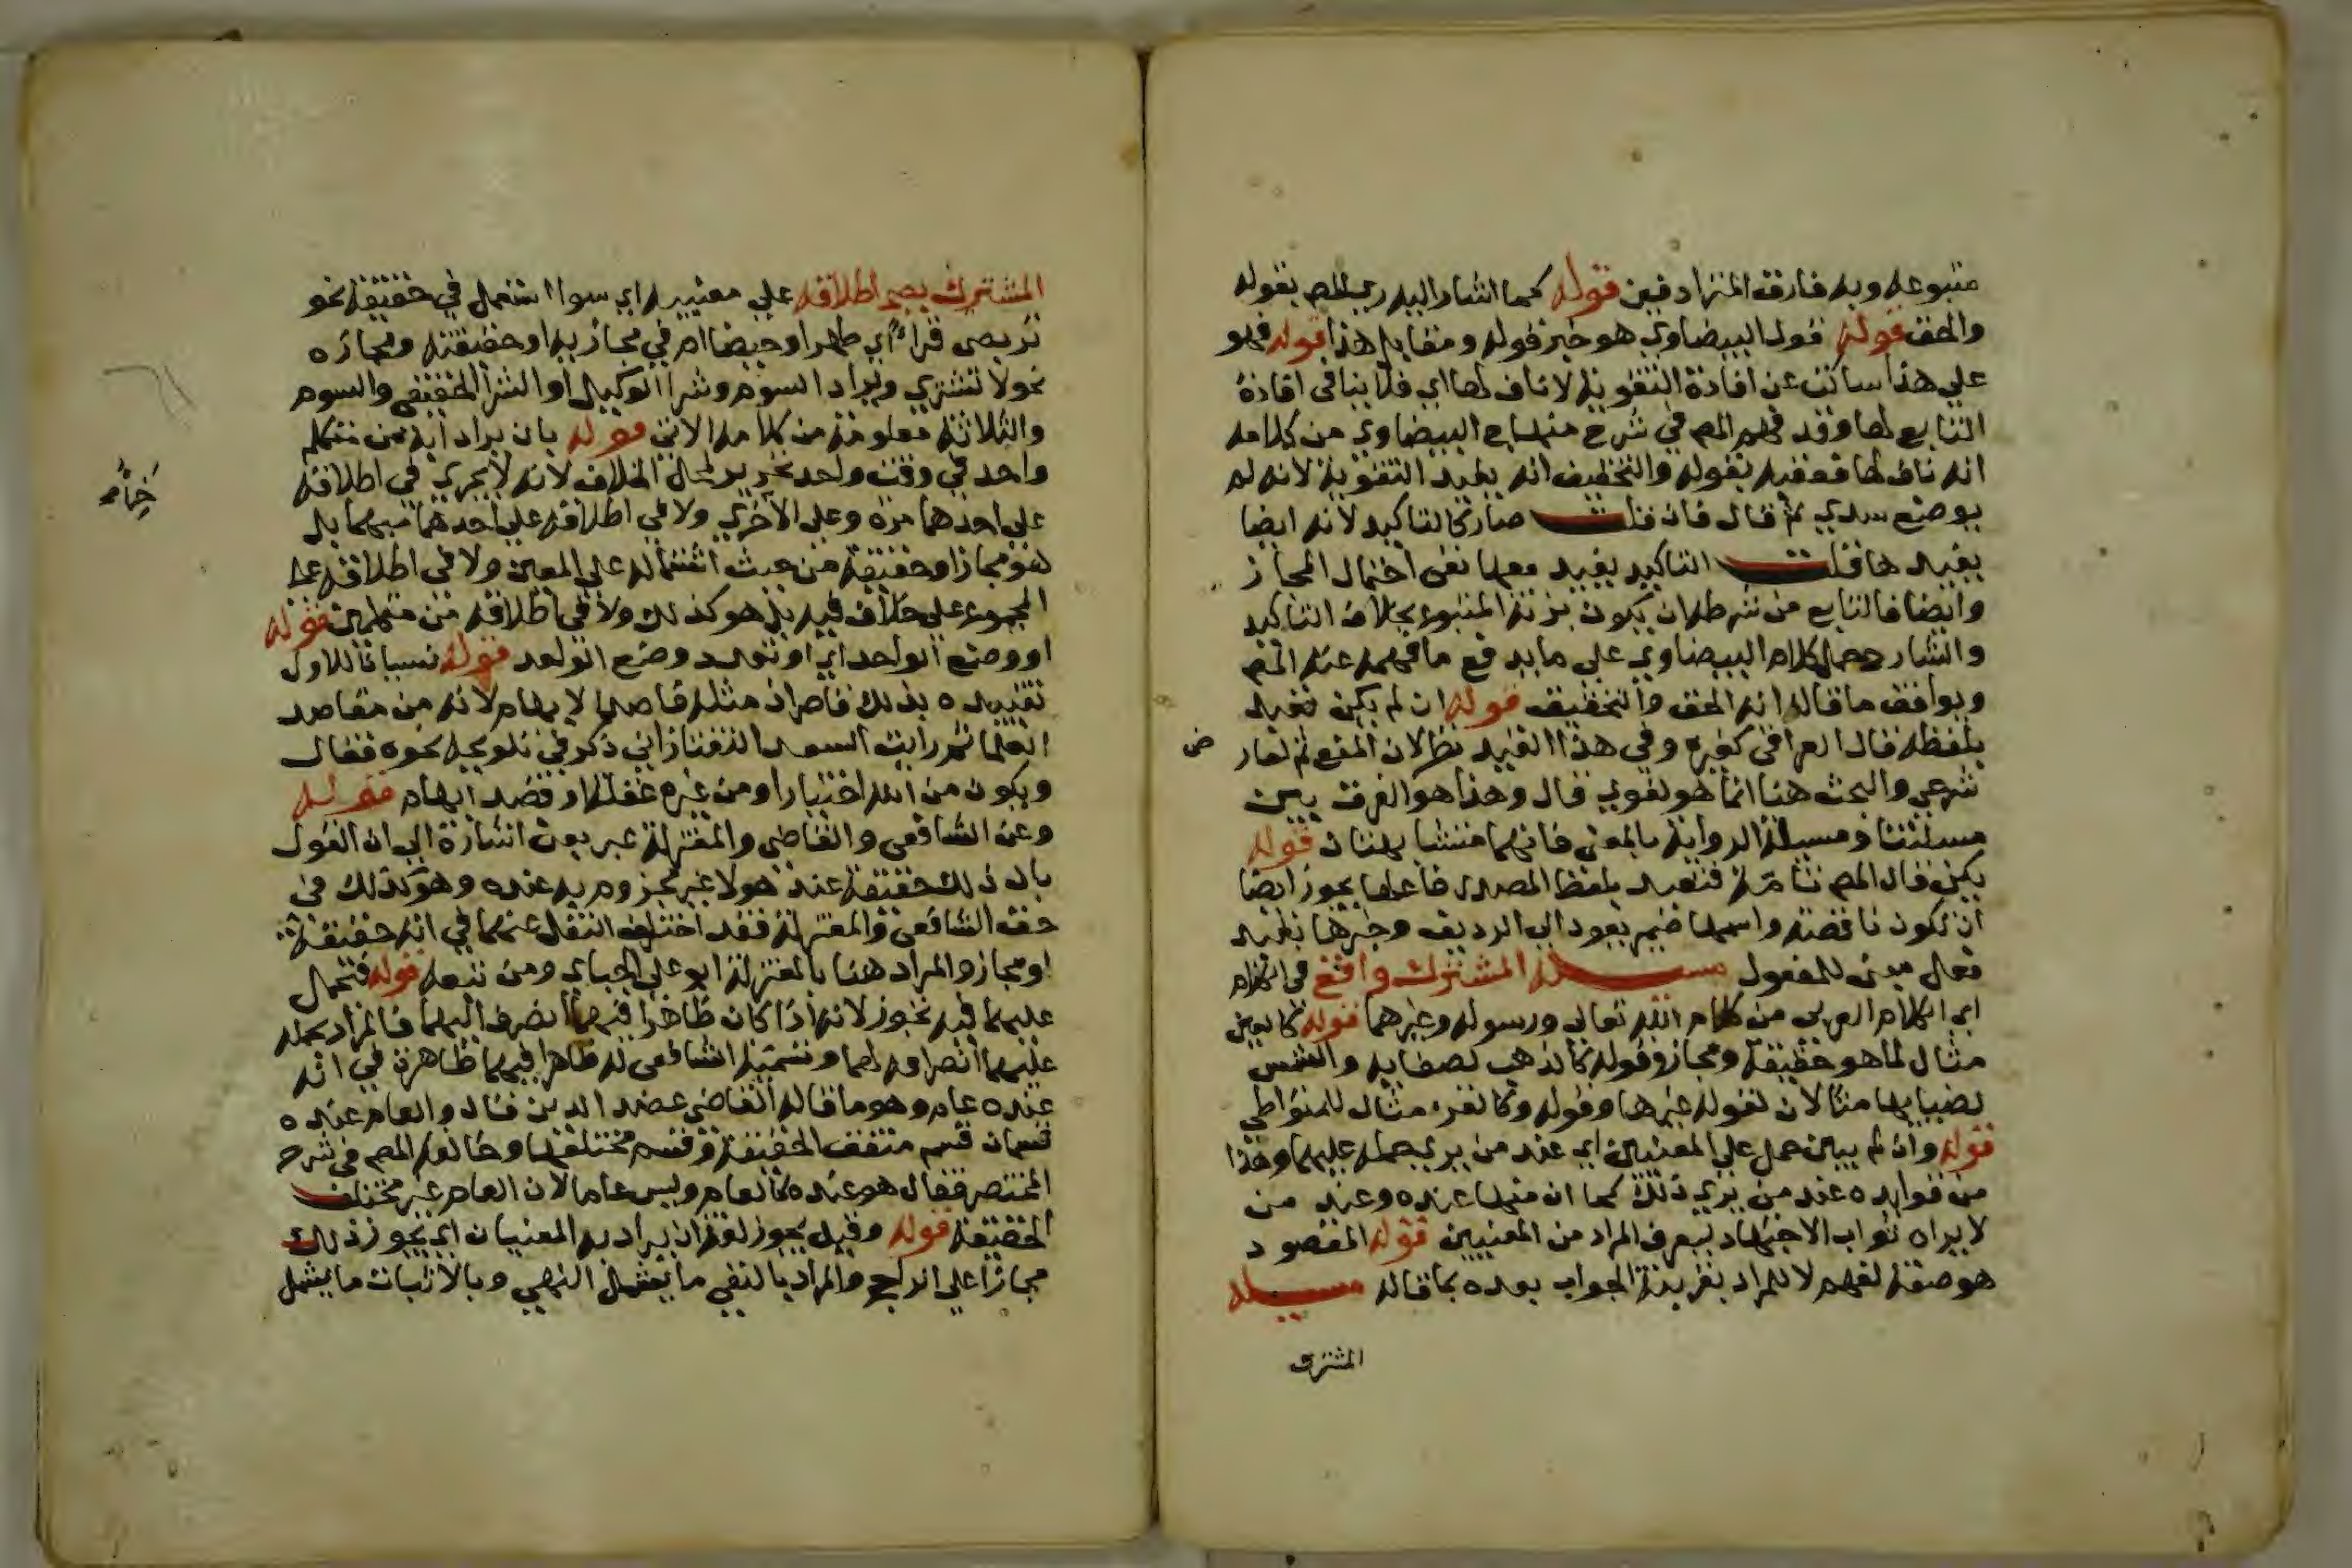 متبوعه وبه فارق المترادفين قوله كما اشار اليه رى المص بقوله
والحق قوله قول البيضاوي هو خبر قوله ومقابل هذا قوله فهو
على هذا ساكت عن افادة التقوية لا ناف لها اي فلا ينافى افادة
التابع لها وقد فهم المص في شرح منهاج البيضاوي من كلامه
انه ناف لها فعقبه بقوله والتحقيق انه يفيد التقوية لانه لم
يوضع سدي ثم قال فان قلت صار كالتاكيد لانه ايضا
يفيدها قلت التاكيد يفيد معها نفى احتمال المجاز
وايضا فالتابع من شرطه ان يكون بزنة المتبوع بخلاف التاكيد
والشارح حمل كلام البيضاوي على ما يدفع ما فهمه عنه المص
ويوافق ما قاله انه الحق والتحقيق قوله ان لم يكن تعبد
بلفظه قال العراقى كغيره وفي هذا القيد نظر لان المنع ثم لعارض
شرعي والبحث هنا انما هو لغوي قال وهذا هو الفرق بين
مسئلتنا ومسيلة الرواية بالمعنى فانهما متشابهتان قوله
يكن قال المص تامة فتعبد بلفظ المصدر فاعلها يجوز ايضا
ان تكون ناقصة واسمها ضمير يعود الى الرديف وخبرها تعبد
فعل مبنى للمفعول مسيلة المشترك واقع في الكلام
اي الكلام العربى من كلام الله تعالى ورسوله وغيرهما قوله كالعين
مثال لما هو حقيقة ومجاز وقوله كالذهب لصفايه والشمس
لضيايها مثالان لقوله غيرها وقوله وكالقرء مثال للمتواطي
قوله وان لم يبين حمل على المعنيين اي عند من يرى حمله عليهما وهذا
من فوايده عند من يرى ذلك كما ان منها عنده وعند من
لا يراه ثواب الاجتهاد ليعرف المراد من المعنيين قوله المقصود
هو صفة لفهم لا للمراد بقرينة الجواب بعده بما قاله مسيله
المشترك
المشترك يصح اطلاقه على معنييه اي سوا استعمل في حقيقة نحو
تربصى قراء اي طهرا وحيضا ام في مجازيه او حقيقته ومجازه
نحو لا تشتري ويراد السوم وشرا الوكيل او الشرا الحقيقى والسوم
والثلاثة معلومة من كلامه الاتى قوله بان يراد ابه من متكلم
واحد في وقت واحد تحرير لمحل الخلاف لانه لا يجري في اطلاقه
على احدهما مرة وعلى الاخرى ولا في اطلاقه على احدهما مبهما بل
هو مجاز او حقيقة من حيث اشتماله على المعين ولا في اطلاقه على
المجموع على خلاف فيه بل هو كذلك ولا في اطلاقه من متكلمين قوله
او وضع الواحد اي او تعدد وضع الواحد قوله نسيانا للاول
تقييده بذلك قاصر اذ مثله قاصد الايهام لانه من مقاصد
العلما ثم رايت السعد التفتازاني ذكر في تلويحه نحوه فقال
ويكون من الله اختبارا ومن غيره غفلة او قصد ايهام قوله
وعن الشافعى والقاضي والمعتزلة عبر بعن اشارة الى ان القول
بان ذلك حقيقة عند هولا غير مجزوم به عنده وهو كذلك في
حق الشافعى والمعتزلة فقد اختلف النقل عنهما في انه حقيقة
او مجاز والمراد هنا بالمعتزلة ابو على الجباي ومن تبعه قوله فتحمل
عليهما فيه تجوز لانه اذا كان ظاهرا فيهما انصرف اليهما فالمراد بحمله
عليهما انصرافه لهما وتسمية الشافعى له ظاهرا فيهما ظاهرة في انه
عنده عام وهو ما قاله القاضى عضد الدين فقال والعام عنده
قسمان قسم متفق الحقيقة وقسم مختلفها وخالفه المص في شرح
المختصر فقال هو عنده كالعام وليس عاما لان العام غير مختلف
الحقيقة قوله وقيل يجوز لغة ان يراد به المعنيان اي يجوز ذلك
مجازا على الراجح والمراد بالنفى ما يشمل النهي وبالاثبات ما يشمل